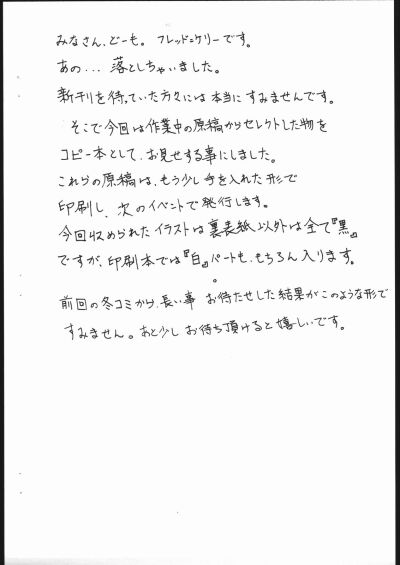 みなさん、どーも。フレッド=ケリーです。
あの… 落としちゃいました。
新刊を待っていた方々には本当にすみませんです。
そこで今回は作業中の原稿からセレクトした物を
コピー本として、お見せする事にしました。
これらの原稿は、もう少し手を入れた形で
印刷し、次のイベントで発行します。
今回収められたイラストは裏表紙以外は全て『黒』
ですが、印刷本では『白』パートも、もちろん入ります。
。
前回の冬コミから、長い事 お待たせした結果がこのような形で
すみません。あと少しお待ち頂けると嬉しいです。